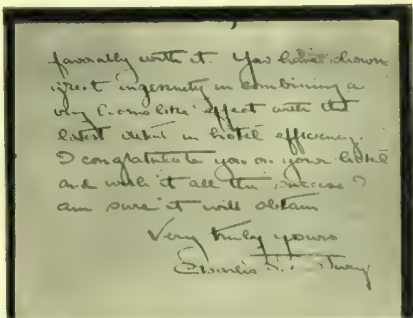 favorably with it. You have shown
great ingenuity in combining a
very homelike effect with the
latest detail in hotel efficiency.
I congratulate you on your hotel
and wish it all the success I
am sure it will obtain
Very truly yours
Charles